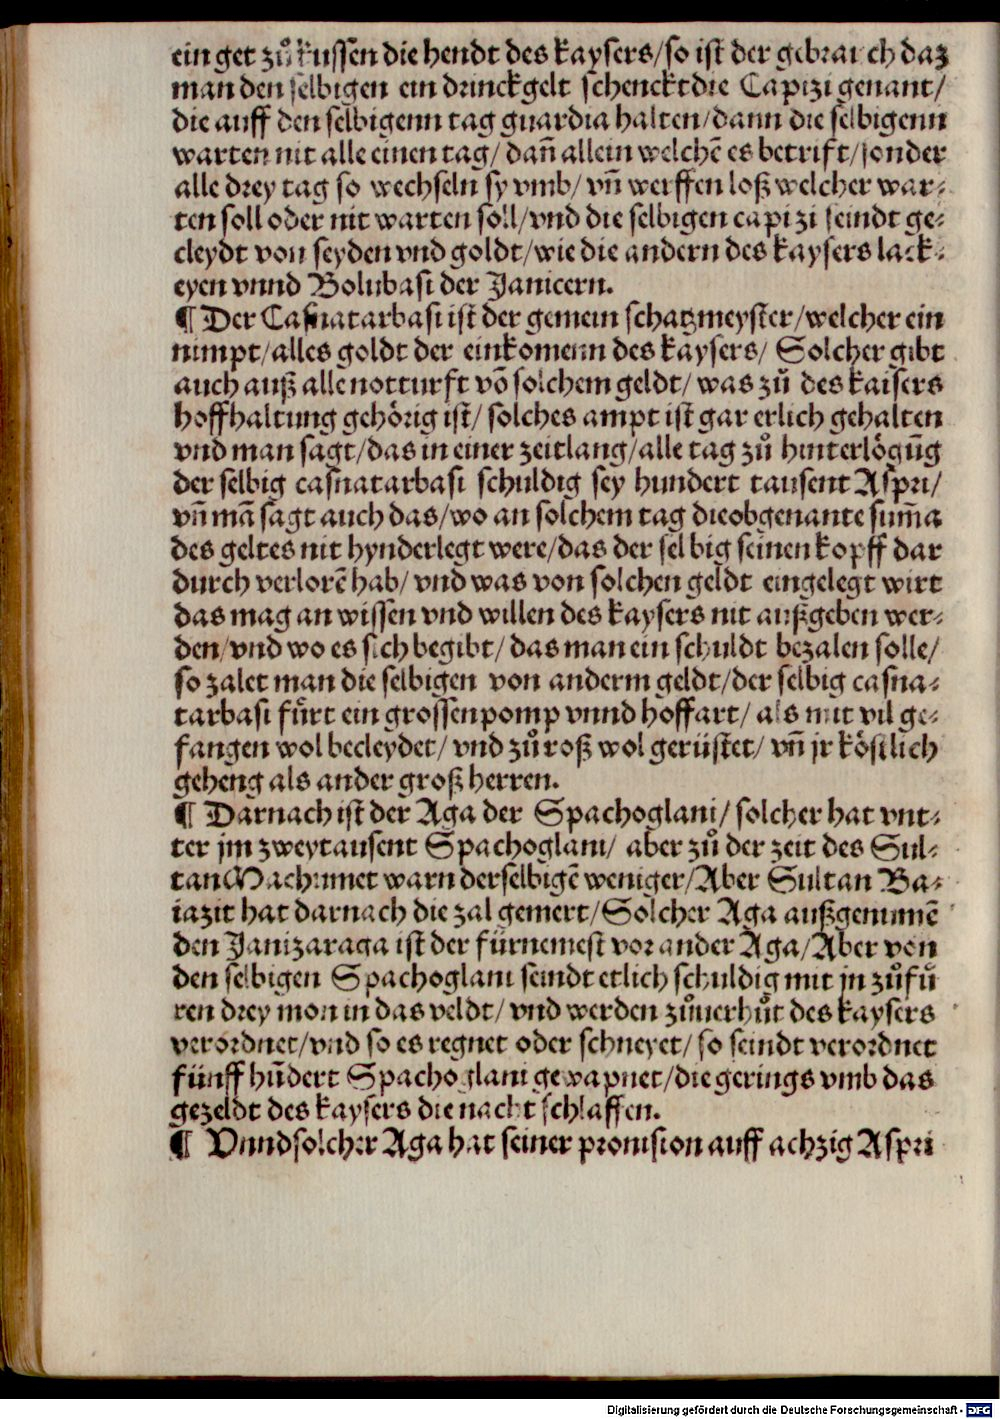 ein get zuͦ kussen die hendt des kaysers/so ist der gebrauch daz
man den selbigen ein drinckgelt schenckt die Capizi genant/
die auff den selbigenn tag guardia halten/dann die selbigenn
warten nit alle einen tag/ dañ allein welchē es betrift/sonder
alle drey tag so wechseln sy vmb/ vñ werffen loß welcher war⸗
ten soll oder nit warten soll/vnd die selbigen capizi seindt ge⸗
cleydt von seyden vnd goldt/wie die andern des kaysers lack⸗
eyen vnnd Bolubasi der Janicern.
¶ Der Casnatarbasi ist der gemein schatzmeyster/welcher ein
nimpt/alles goldt der einkomenn des kaysers/ Solcher gibt
auch auß alle notturft vō solchem geldt/ was zuͦ des kaisers
hoffhaltung gehörig ist/ solches ampt ist gar erlich gehalten
vnd man sagt/das in einer zeitlang/alle tag zuͦ hinterlögūg
der selbig casnatarbasi schuldig sey hundert tausent Aspri/
vñ mā sagt auch das/wo an solchem tag die obgenante sum̄a
des geltes nit hynderlegt were/das der selbig seinen kopff dar
durch verlorē hab/ vnd was von solchen geldt eingelegt wirt
das mag an wissen vnd willen des kaysers nit außgeben wer⸗
den/vnd wo es sich begibt/das man ein schuldt bezalen solle/
so zalet man die selbigen von anderm geldt/der selbig casna⸗
tarbasi fuͤrt ein grossen pomp vnnd hoffart/ als mit vil ge⸗
fangen wol becleydet/ vnd zuͦ roß wol gerüstet/ vñ jr köstlich
geheng als ander groß herren.
¶ Darnach ist der Aga der Spachoglani/ solcher hat vnt⸗
ter jm zweytausent Spachoglani/ aber zuͦ der zeit des Sul⸗
tan Machumet warn derselbigē weniger/Aber Sultan Ba⸗
iazit hat darnach die zal gemert/Solcher Aga außgenummē
den Janizaraga ist der fürnemest vor ander Aga/Aber von
den selbigen Spachoglani seindt etlich schuldig mit jn zuͦ fuͤ
ren drey mon in das veldt/ vnd werden zuͦuerhuͤt des kaysers
verordnet/vnd so es regnet oder schneyet/ so seindt verordnet
fünff hūdert Spachoglani gewapnet/die gerings vmb das
gezeldt des kaysers die nacht schlaffen.
¶ Vnnd solcher Aga hat seiner prouision auff achzig Aspri
Digitalisierung gefördert durch die Deutsche Forschungsgemeinschaft - DFG